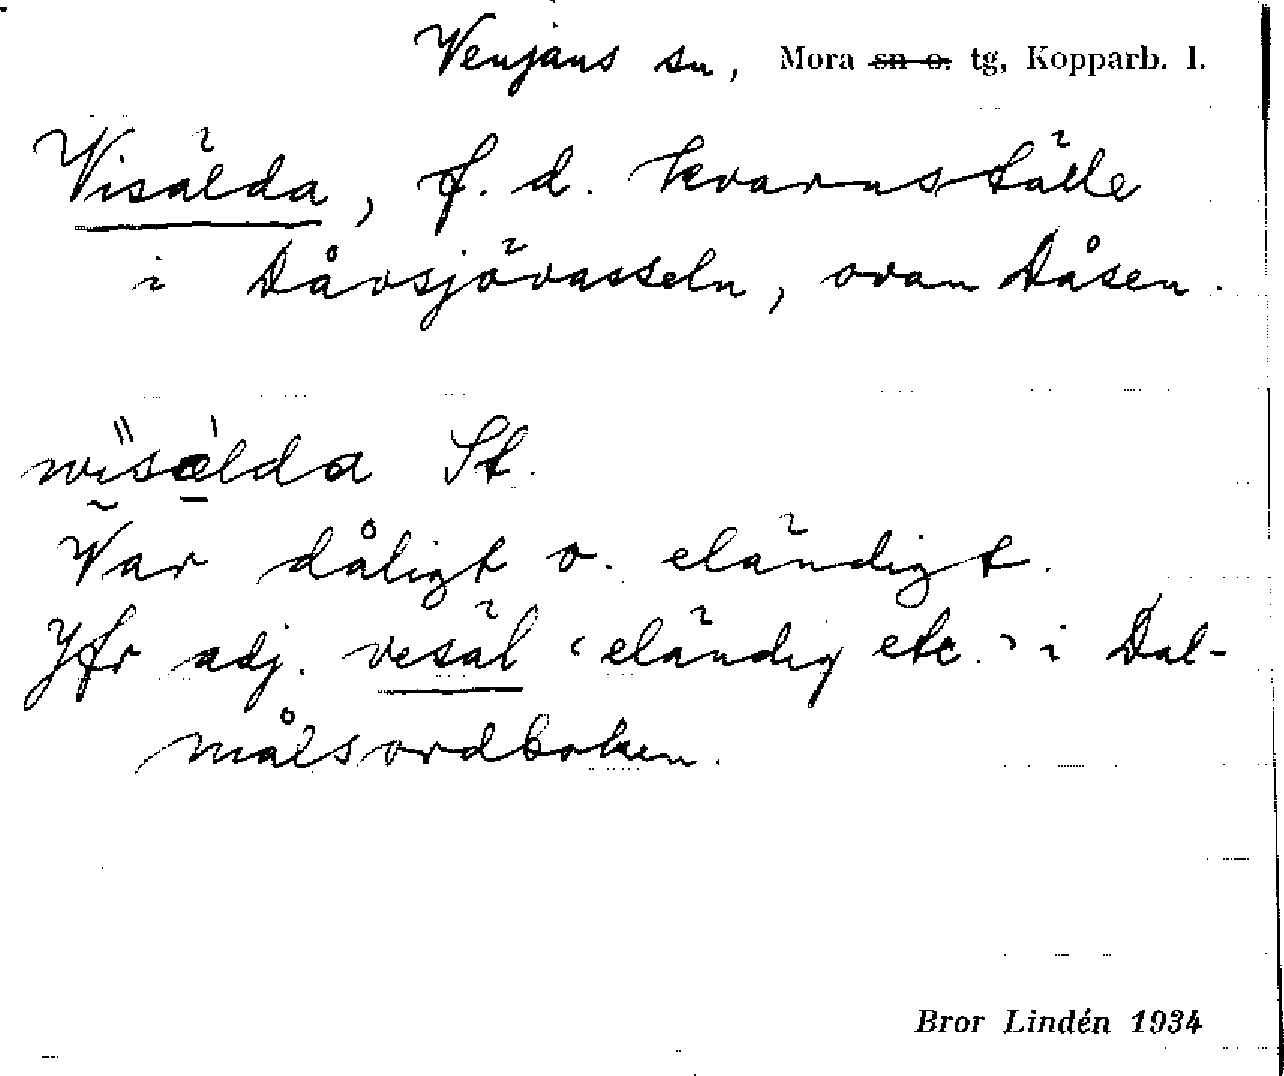 Venjans sn, Mora sn o. tg, Kopparb. l.
Visälda, f. d. kvarnställe
i Dåvsjövasseln, ovan Dåsen.
wisælda St.
Var dåligt o. eländigt.
Jfr adj. vesäl 'eländig etc.' i Dal-
målsordboken.
Bror Lindén 1934